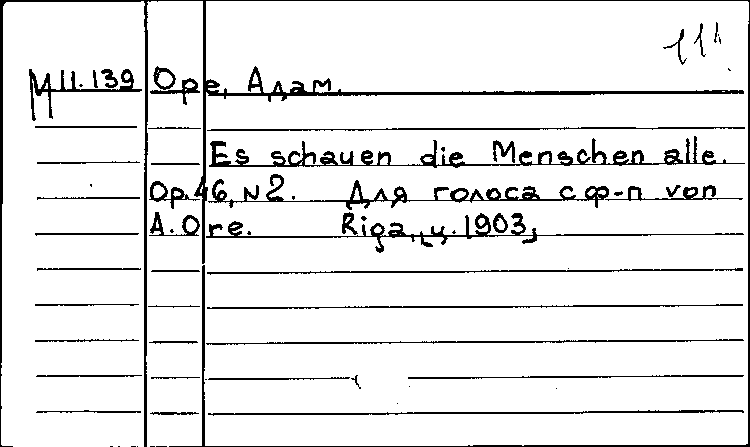 111
М II.139 Оре, Адам.
Es schauen die Menschen alle.
Op.46, N2. Для голоса с ф-п von
A. Ore. Riga, ц. 1903,